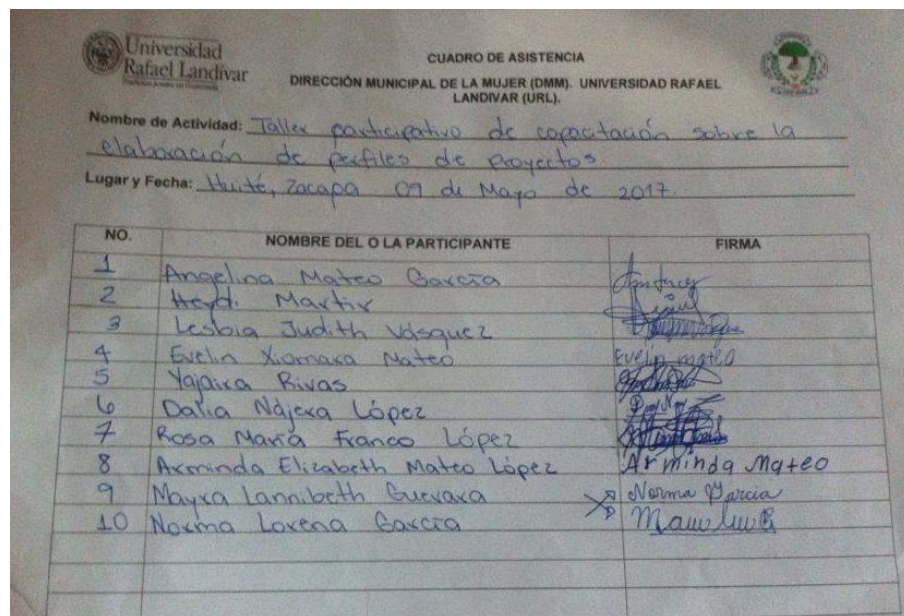 Universidad
Rafael Landívar
CUADRO DE ASISTENCIA
DIRECCIÓN MUNICIPAL DE LA MUJER (DMM). UNIVERSIDAD RAFAEL
LANDIVAR (URL).
Nombre de Actividad: Taller participativo de capacitación sobre la
elaboración de perfiles de Proyectos
Lugar y Fecha: Huité, Zacapa 09 de Mayo de 2017.
NO. NOMBRE DEL O LA PARTICIPANTE FIRMA
1 Angelina Mateo García
2 Heydi Martir
3 Lesbia Judith Vásquez
4 Evelin Xiomara Mateo Evelin mateo
5 Yajaira Rivas
6 Dalia Nájera López
7 Rosa María Franco López
8 Arminda Elizabeth Mateo López Arminda Mateo
9 Mayra Lannibeth Guevara Norma Garcia
10 Norma Lorena García